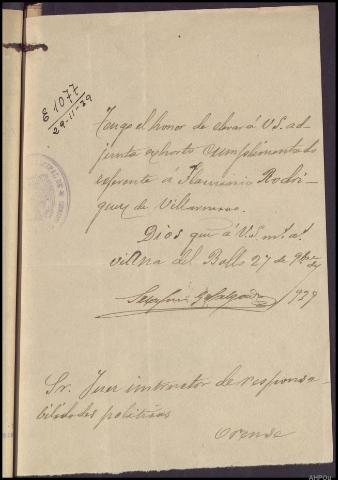 E 1077
29-11-39
Tengo el honor de elevar á V.S. ad-
junta exhorto cumplimentado
referente á Flaminio Rodri-
guez de Villar
Dios gue á V.S. m.s a.s
Villna del Bollo 27 de 9bre de
1939
Sr. Juez instructor de responsa-
bilidades politicas
Orense
AHPOu